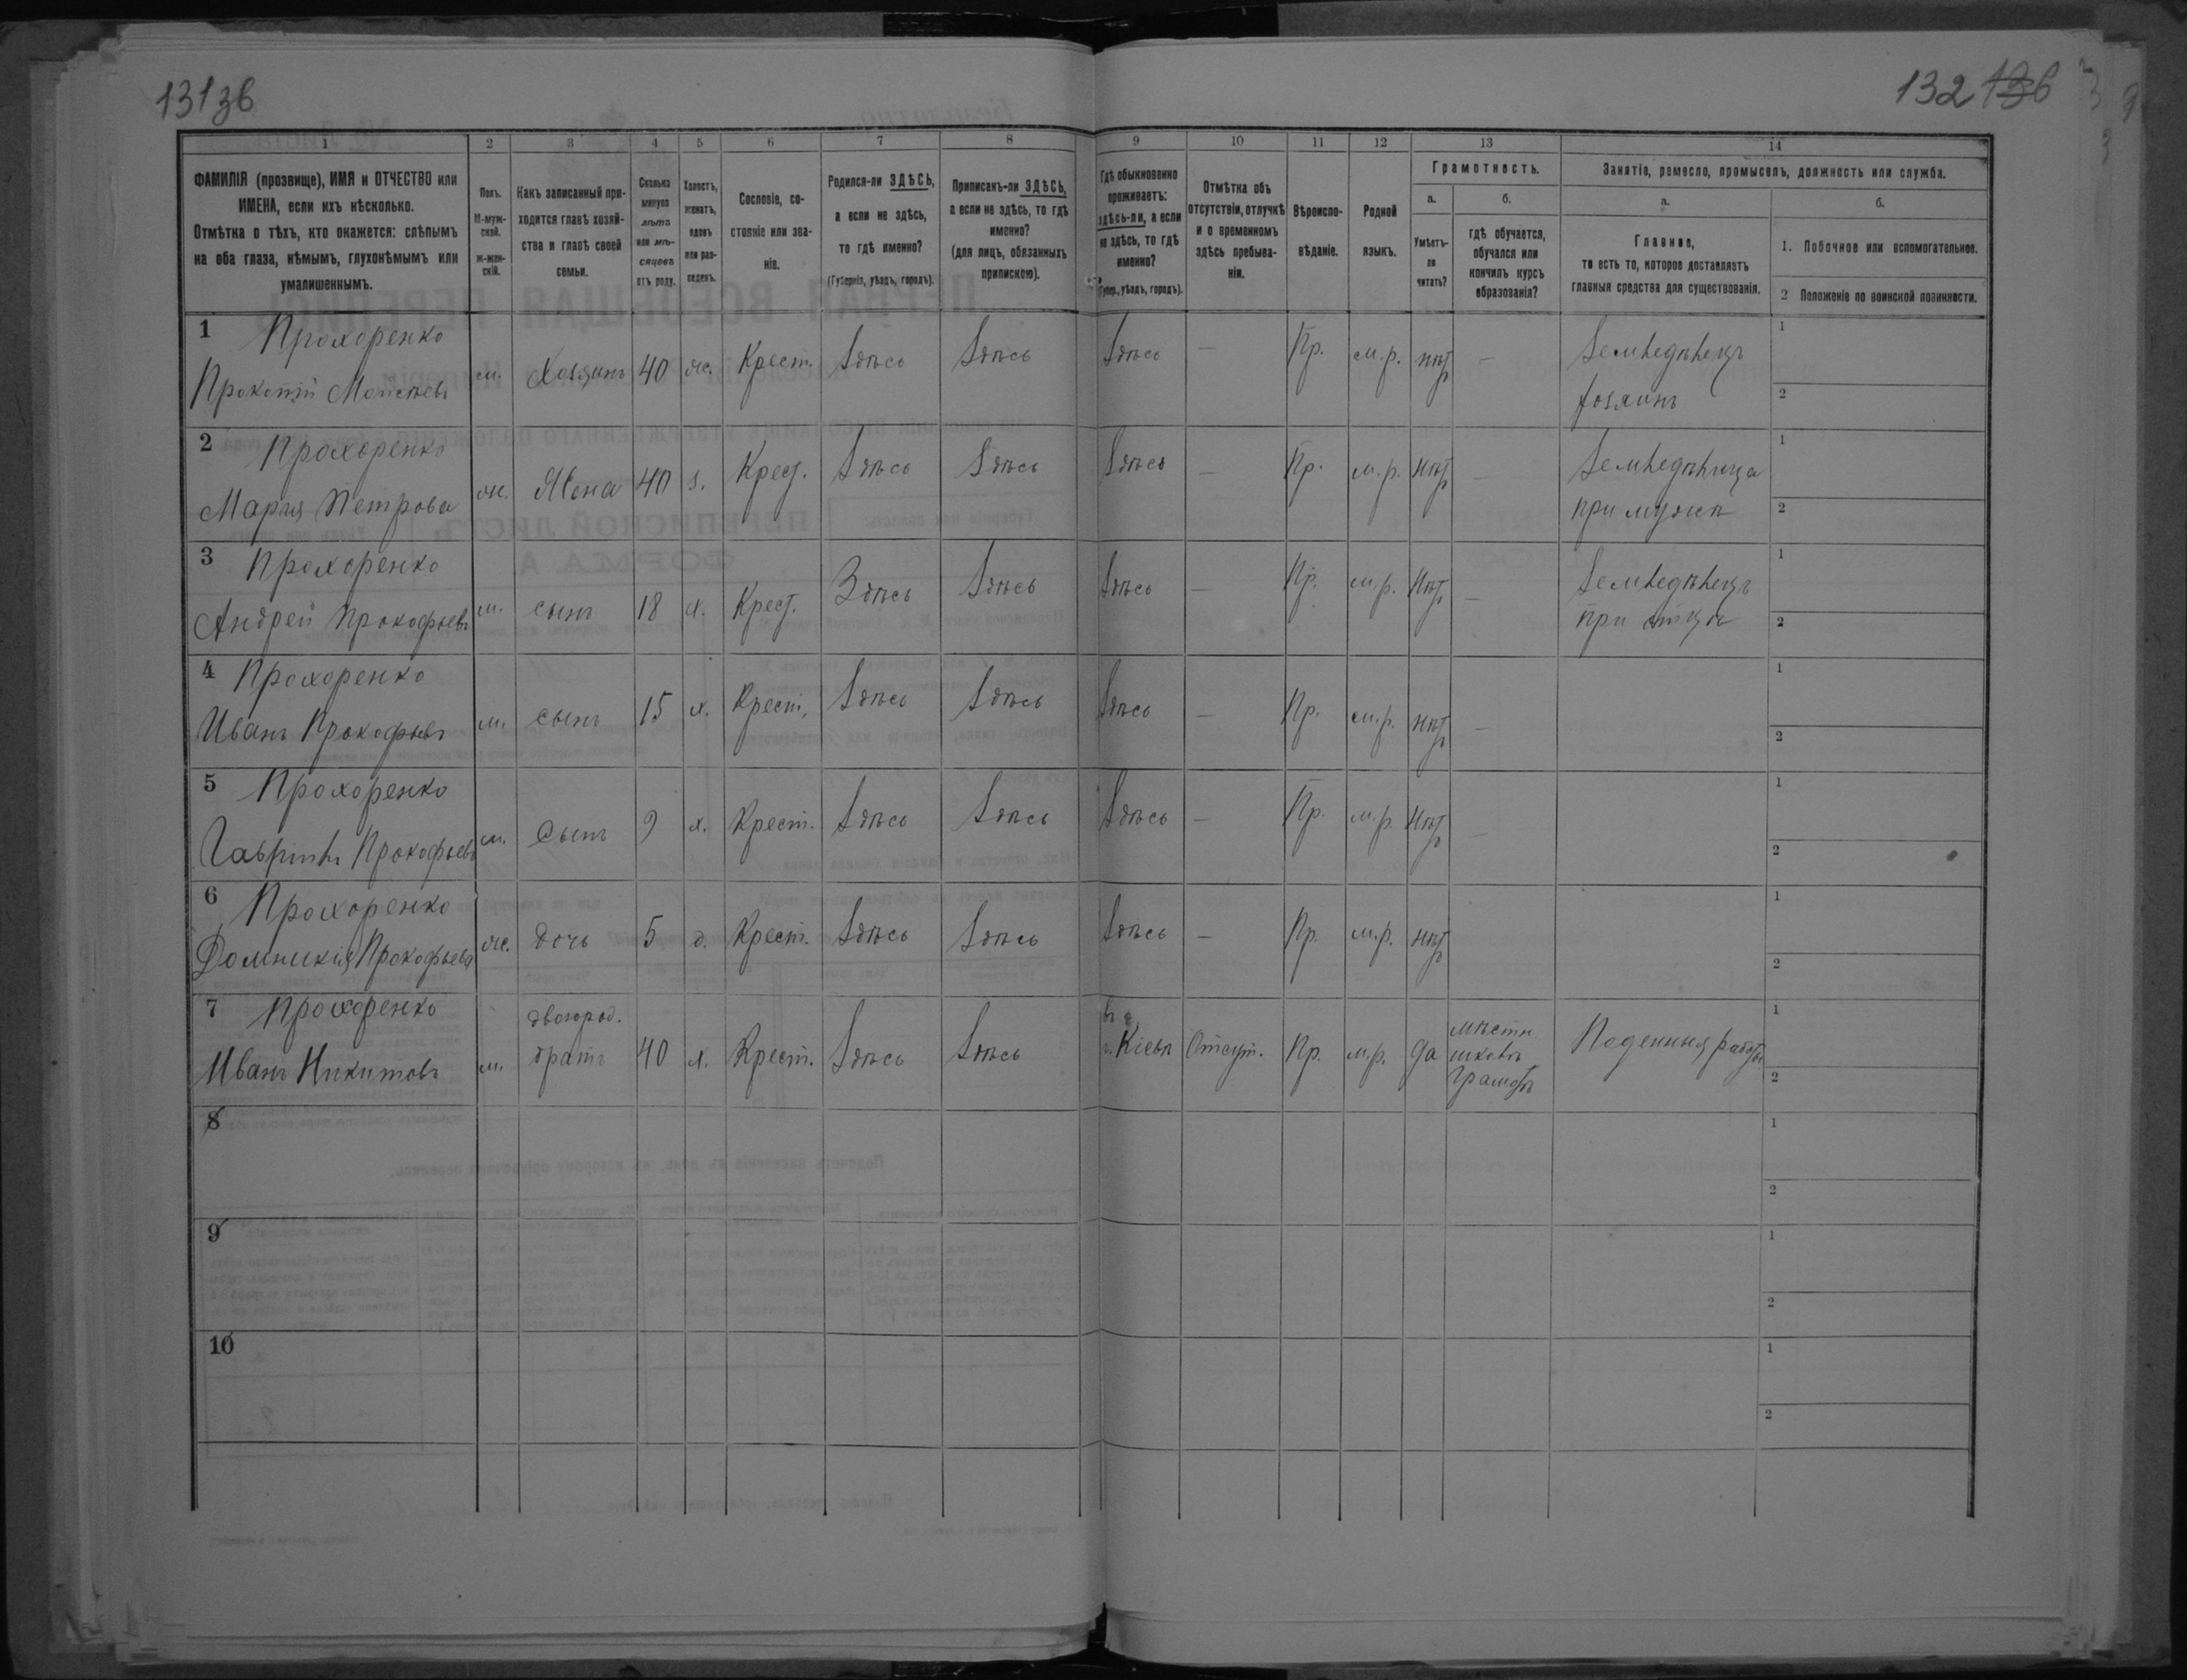 131зв
132 136
1 2 3 4 5 6 7 8 9 10 11 12 13 14
ФАМИЛІЯ (прозвище), ИМЯ и ОТЧЕСТВО или
ИМЕНА, если ихъ нѣсколько.
Отмѣтка о тѣхъ, кто окажется: слѣпымъ
на оба глаза, нѣмымъ, глухонѣмымъ или
умалишеннымъ.
Полъ.
М-муж-
ской.
Ж-жен-
скій.
Какъ записанный при-
ходится главѣ хозяй-
ства и главѣ своей
семьи.
Сколько
минуло
лѣтъ
или мѣ-
сяцевъ
отъ роду.
Холостъ,
женатъ,
вдовъ
или раз-
веденъ.
Сословіе, со-
стояніе или зва-
ніе.
Родился-ли ЗДѢСЬ,
а если не здѣсь,
то гдѣ именно?
(Губернія, уѣздъ, городъ).
Приписанъ-ли ЗДѢСЬ,
а если не здѣсь, то гдѣ
именно?
(для лицъ, обязанныхъ
припискою).
Гдѣ обыкновенно
проживаетъ:
здѣсь-ли, а если
не здѣсь, то гдѣ
именно?
(Губер., уѣздъ, городъ).
Отмѣтка объ
отсутствіи, отлучкѣ
и о временномъ
здѣсь пребыва-
ніи.
Вѣроиспо-
вѣданіе.
Родной
языкъ.
Грамотность.
а.
Умѣетъ-
ли
читать?
б.
гдѣ обучается,
обучался или
кончилъ курсъ
образованія?
Занятіе, ремесло, промыселъ, должность или служба.
а.
Главное,
то есть то, которое доставляетъ
главныя средства для существованія.
б.
1. Побочное или вспомогательное.
2 Положеніе по воинской повинности.
1 Прохоренко
Прокопій Моисѣевъ м. Хозяинъ 40 ж. Крест. Здѣсь Здѣсь Здѣсь — Пр. м.р. нѣтъ — Земледѣлецъ
хозяинъ
1
2
2 Прохоренко
Марія Петрова ж. Жена 40 з. Крест. Здѣсь Здѣсь Здѣсь — Пр. м.р. нѣтъ — Земледѣлица
при мужѣ
1
2
3 Прохоренко
Андрей Прокофьевъ м. сынъ 18 х. Крест. Здѣсь Здѣсь Здѣсь — Пр. м.р. нѣтъ — Земледѣлецъ
при отцѣ
1
2
4 Прохоренко
Иванъ Прокофьевъ м. сынъ 15 х. Крест. Здѣсь Здѣсь Здѣсь — Пр. м.р. нѣтъ —
1
2
5 Прохоренко
Гавріилъ Прокофьевъ м. Сынъ 9 х. Крест. Здѣсь Здѣсь Здѣсь — Пр. м.р. нѣтъ —
1
2
6 Прохоренко
Домникія Прокофьева ж. дочь 5 д. Крест. Здѣсь Здѣсь Здѣсь — Пр. м.р. нѣтъ
1
2
7 Прохоренко
Иванъ Никитовъ м. двоюрод.
братъ 40 х. Крест. Здѣсь Здѣсь въ
г. Кіевѣ Отсут. Пр. м.р. да Поденныя работы
1
2
8
1
2
9
1
2
10
1
2